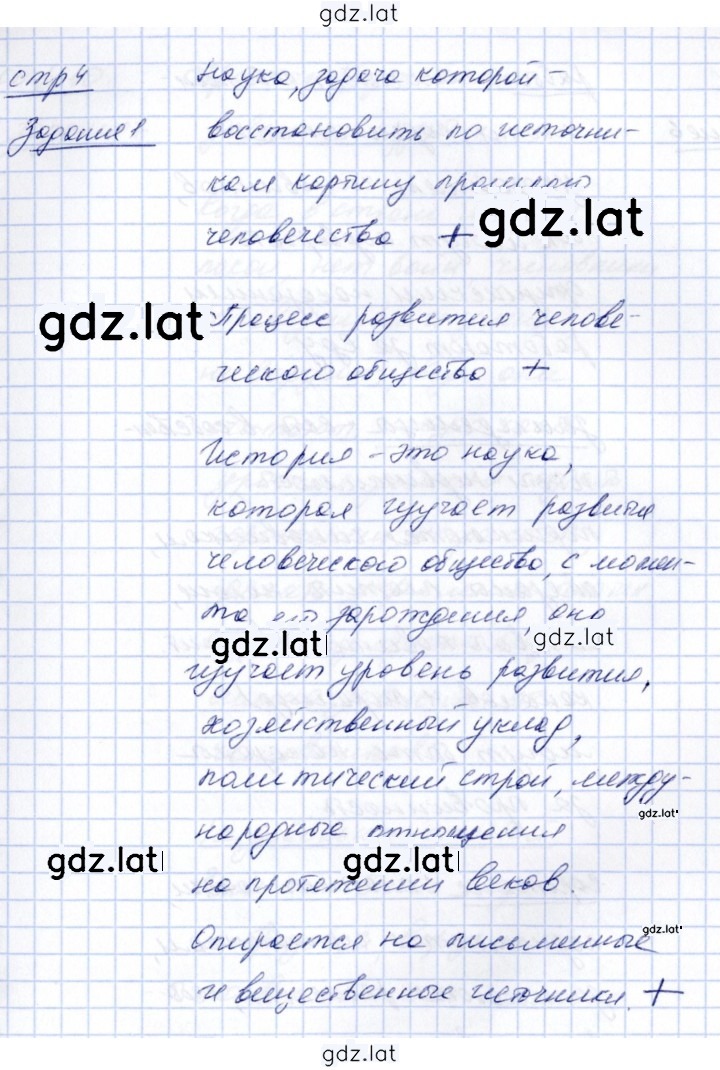 gdz.lat
стр 4
наука, задача которой –
Задание 1
восстановить по источни-
кам картину
gdz.lat
человечества +
gdz.lat
Процесс развития челове-
ческого общества +
История – это наука,
которая изучает развитие
человеческого общества, с момен-
та его зарождения, она
gdz.lat
gdz.lat
изучает уровень развития,
хозяйственный уклад,
политический строй, между-
gdz.lat
народные отношения
gdz.lat
gdz.lat
на протяжении веков.
gdz.lat
Опирается на письменные
и вещественные источники. +
gdz.lat